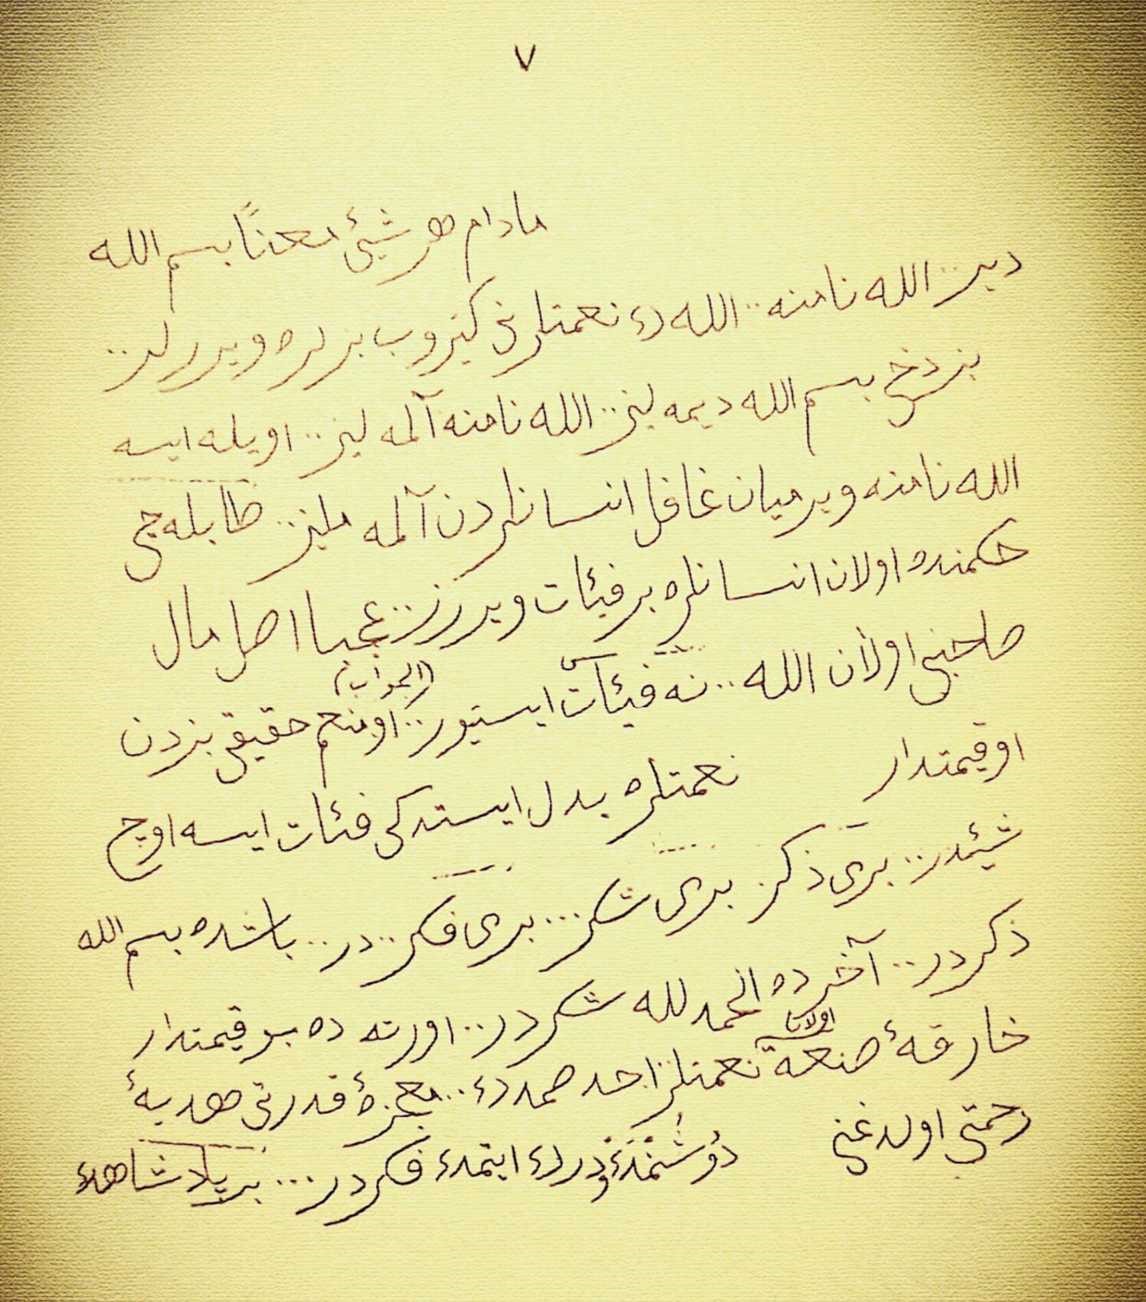 ٧
مادام هر شیئ معناً بسم الله
دیر.. الله نامنه.. الله دء نعمتلرنی کتیروب بزلره ویررلر..
بزدخی بسم الله دیمه لیز.. الله نامنه آلمه لیز.. اویله ایسه
الله نامنه ویرمیان غافل انسانلردن آلمه ملیز.. طابله جی
حکمنده اولان انسانلره بر فیئات ویررز.. عجبا اصل مال
صاحبی اولان الله.. نه فیئات ایستیور.. (الجواب) او منعم حقیقی بزدن
او قیمتدار نعمتلره بدل ایستدکی فئات ایسه اوچ
شیئدر.. بری ذکر. بری شکر... بری فکر..در.. باشده بسم الله
ذکردر.. آخرده الحمد لله شکردر.. اورته ده بو قیمتدار
خارقهٔ صنعة اولان نعمتلر احد صمدء.. معجزهٔ قدرتی هدیهٔ
رحمتی اولدغنی دوشنمء ودرء ایتمء فکردر... بر پادشاهء